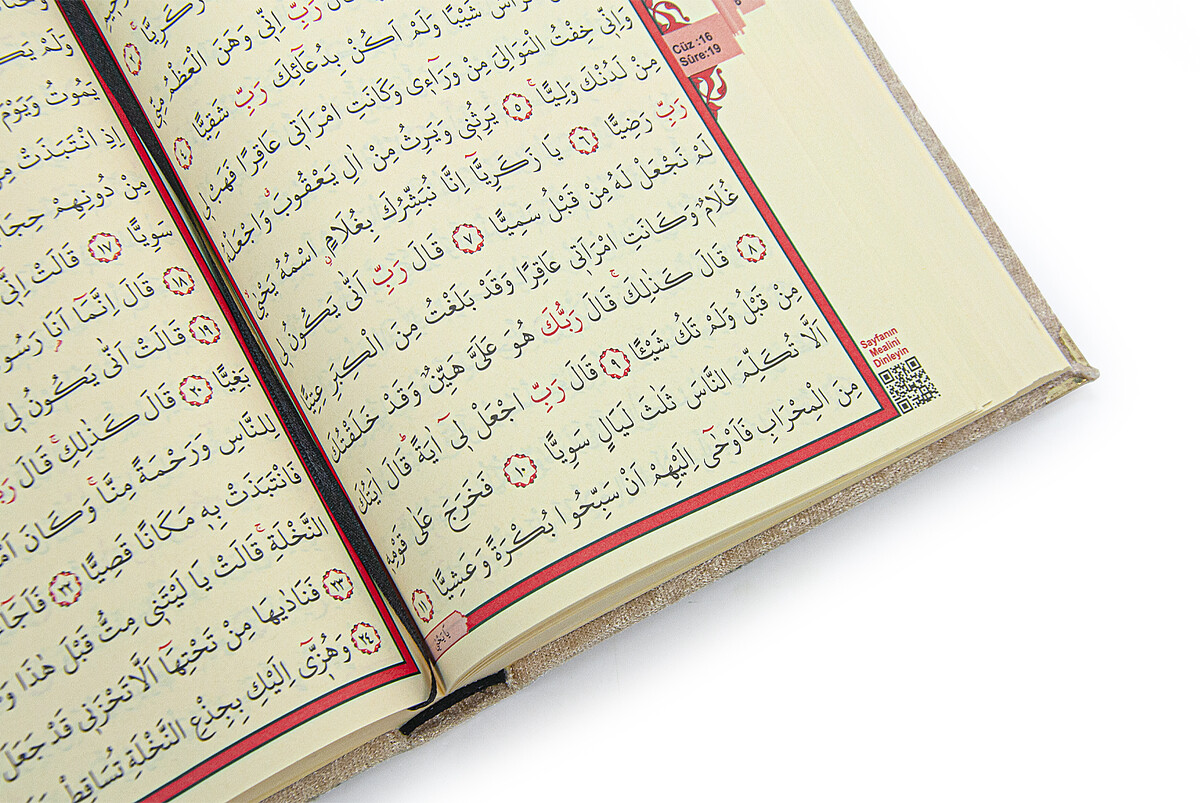 Cüz :16
Sûre:19
رَبِّ اِنّٖي وَهَنَ الْعَظْمُ مِنّٖي
شَيْبًا وَلَمْ اَكُنْ بِدُعَٓائِكَ رَبِّ شَقِيًّا ﴿٤﴾
وَاِنّٖي خِفْتُ الْمَوَالِيَ مِنْ وَرَٓاءٖي وَكَانَتِ امْرَاَتٖي عَاقِرًا فَهَبْ لٖي
مِنْ لَدُنْكَ وَلِيًّاۙ ﴿٥﴾ يَرِثُنٖي وَيَرِثُ مِنْ اٰلِ يَعْقُوبَۗ وَاجْعَلْهُ
رَبِّ رَضِيًّا ﴿٦﴾ يَا زَكَرِيَّٓا اِنَّا نُبَشِّرُكَ بِغُلَامٍۨ اسْمُهُ يَحْيٰىۙ
لَمْ نَجْعَلْ لَهُ مِنْ قَبْلُ سَمِيًّا ﴿٧﴾ قَالَ رَبِّ اَنّٰى يَكُونُ لٖي
غُلَامٌ وَكَانَتِ امْرَاَتٖي عَاقِرًا وَقَدْ بَلَغْتُ مِنَ الْكِبَرِ عِتِيًّا
﴿٨﴾ قَالَ كَذٰلِكَۚ قَالَ رَبُّكَ هُوَ عَلَيَّ هَيِّنٌ وَقَدْ خَلَقْتُكَ
مِنْ قَبْلُ وَلَمْ تَكُ شَيْـًٔا ﴿٩﴾ قَالَ رَبِّ اجْعَلْ لٖٓي اٰيَةًۜ قَالَ اٰيَتُكَ
اَلَّا تُكَلِّمَ النَّاسَ ثَلٰثَ لَيَالٍ سَوِيًّا ﴿١٠﴾ فَخَرَجَ عَلٰى قَوْمِهٖ
مِنَ الْمِحْرَابِ فَاَوْحٰٓى اِلَيْهِمْ اَنْ سَبِّحُوا بُكْرَةً وَعَشِيًّا ﴿١١﴾
Sayfanın
Mealini
Dinleyin
يَا يَحْيٰى
وَلَمْ
يَمُوتُ وَيَوْمَ
اِذِ انْتَبَذَتْ
مِنْ دُونِهِمْ
سَوِيًّا ﴿١٧﴾ قَالَتْ اِنّٖٓي
﴿١٨﴾ قَالَ اِنَّمَٓا اَنَا۬
﴿١٩﴾ قَالَتْ اَنّٰى يَكُونُ لٖي
بَغِيًّا ﴿٢٠﴾ قَالَ كَذٰلِكِۚ قَالَ
لِلنَّاسِ وَرَحْمَةً مِنَّاۚ وَكَانَ
فَانْتَبَذَتْ بِهٖ مَكَانًا قَصِيًّا ﴿٢٢﴾
النَّخْلَةِۚ قَالَتْ يَا لَيْتَنٖي مِتُّ قَبْلَ هٰذَا
﴿٢٣﴾ فَنَادٰيهَا مِنْ تَحْتِهَٓا اَلَّا تَحْزَنٖي قَدْ جَعَلَ
﴿٢٤﴾ وَهُزّٖٓي اِلَيْكِ بِجِذْعِ النَّخْلَةِ تُسَاقِطْ